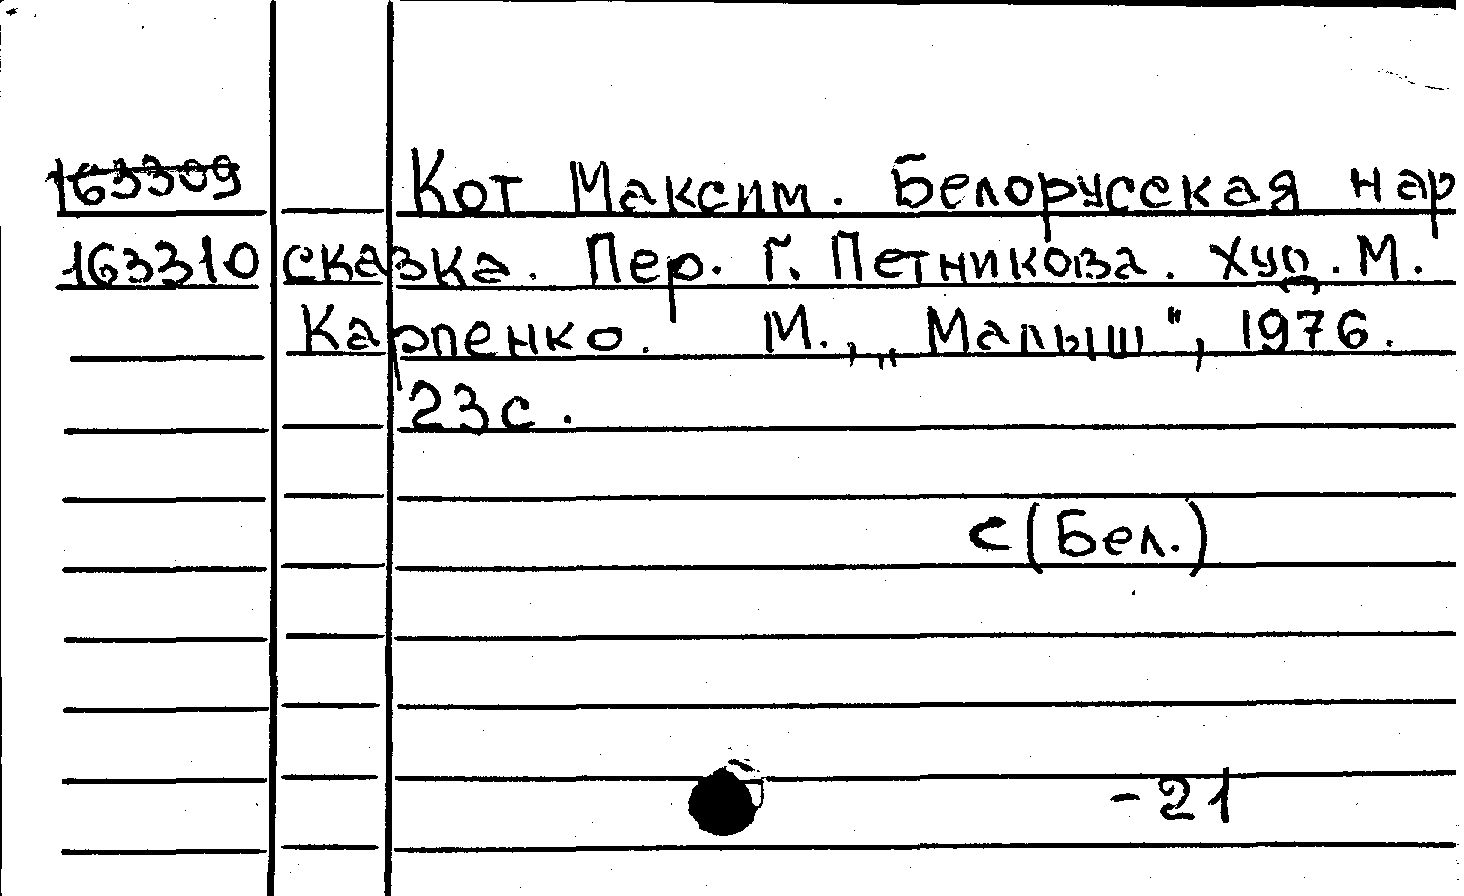 163309 Кот Максим. Белорусская нар
163310 сказка. Пер. Г. Петникова. Худ. М.
Карпенко. М., „Малыш", 1976.
23с.
С(Бел.)
-21